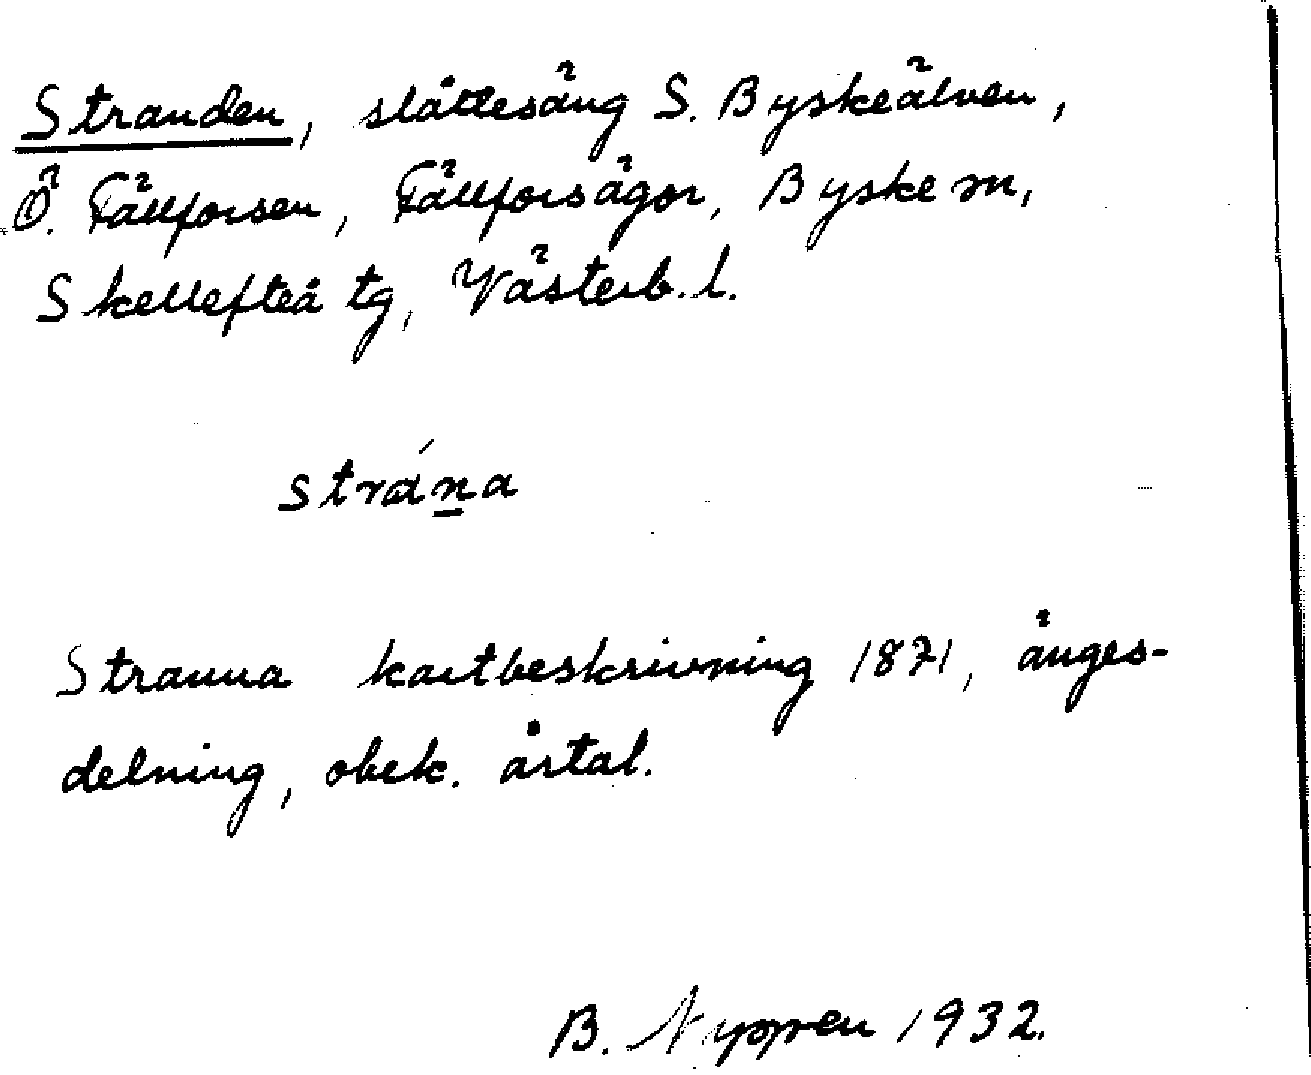 Stranden, slåttesäng S. Byskeälven,
Ö. Fällforsen, Fällforsägor, Byske sn,
Skellefteå tg, Västerb. l.
strána
Stranna kartbeskrivning 1871, änges-
delning, obek. årtal.
B. Nyppen 1932.